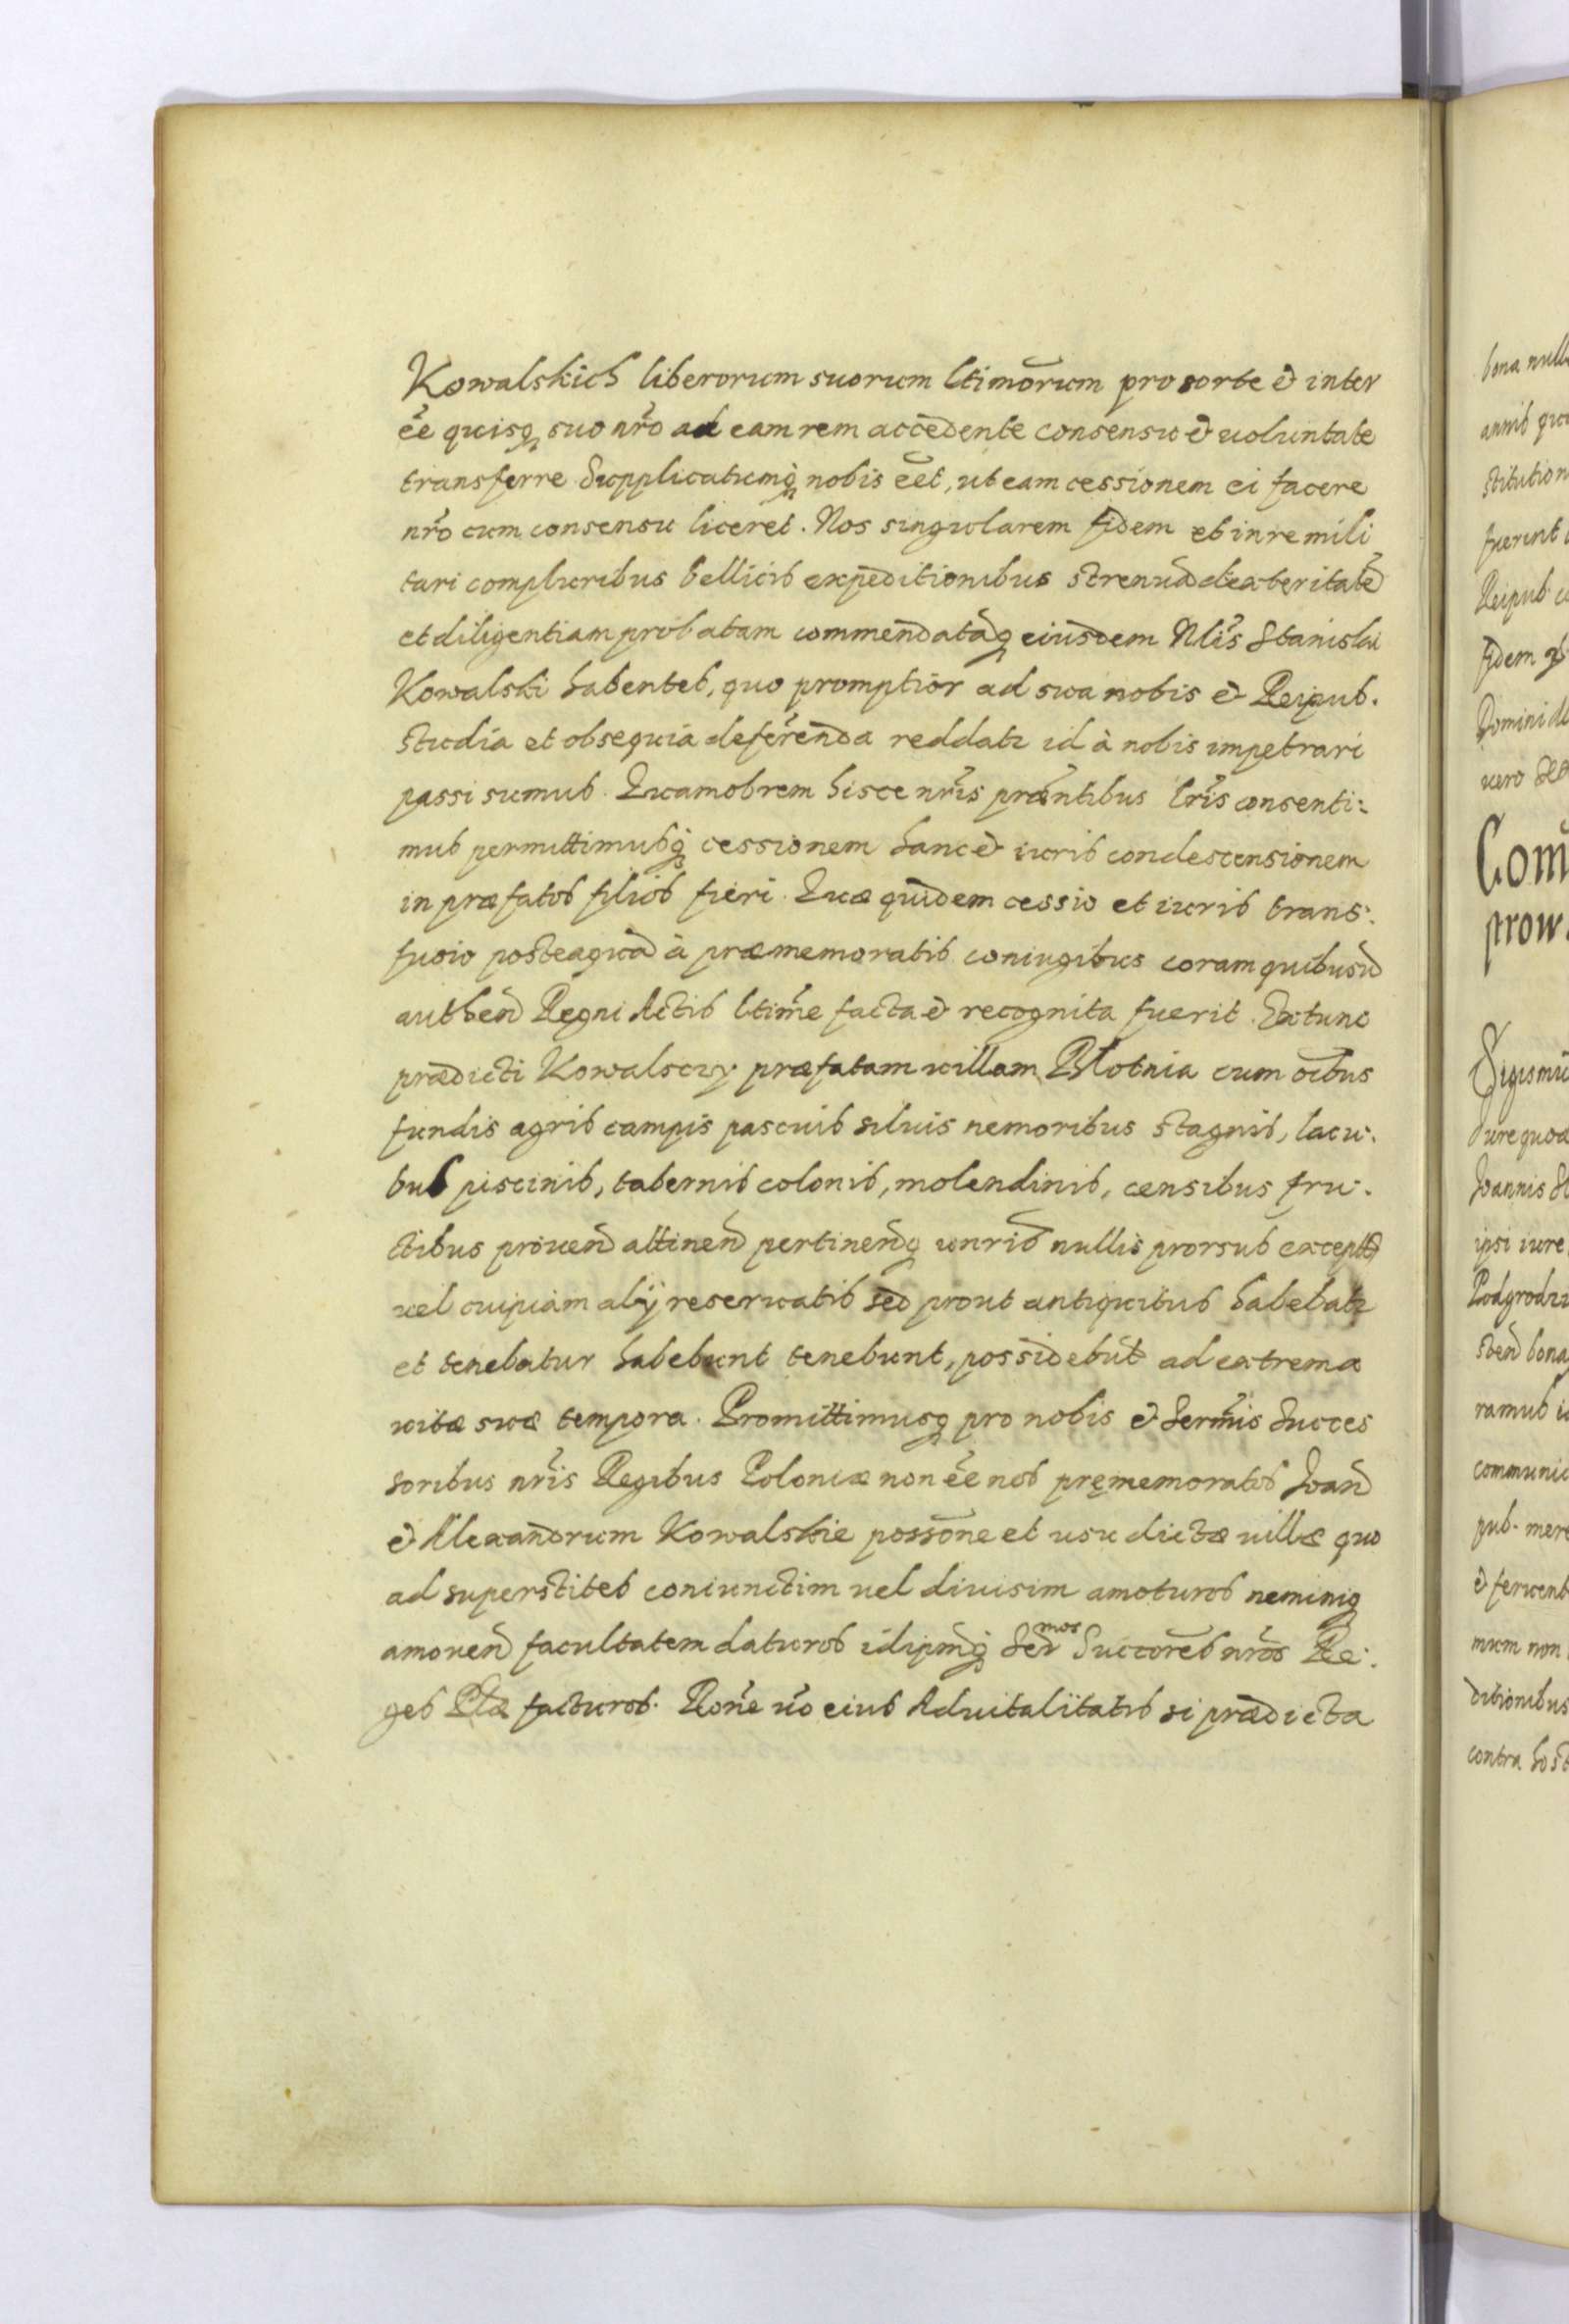 Kowalskich liberorum suorum ltimõrum pro sorte & inter
ẽe quisq suo nr̃o ad eam rem accedente consensu & uoluntate
transferre Supplicatumq nobis ẽet, ut eam cessionem ei facere
nr̃o cum consensu liceret. Nos singularem fidem et in re mili
tari compluribus bellicis expeditionibus strenuã dexteritatẽ
et diligentiam probatam commendatãq eiusdem Nlis̃ Stanislai
Kowalski habentes, quo promptior ad sua nobis & Reipub.
studia et obsequia deferenda reddatr id à nobis impetrari
passi sumus. Quamobrem hisce nr̃is præntibus lr̃is consenti:
mus permittimusq cessionem hanc & iuris condescensionem
in præfatos filios fieri. Quæ quidem cessio et iuris trans:
fusio posteaquã à præmemoratis coniugibus coram quibusuis
authen̄ Regni Actis ltimẽ facta & recognita fuerit. Extunc
prædicti Kowalscy præfatam uillam Błotnia cum oĩbus
fundis agris campis pascuis siluis nemoribus stagnis, lacu:
bus piscinis, tabernis colonis, molendinis, censibus fru:
ctibus prouen̄ attinen̄ pertinen̄q unr̃is nullis prorsus exceptis
uel cuipiam alij reseruatis sed prout antiquitus habebatr
et tenebatur habebunt tenebunt, possidebũt ad extrema
uitæ suæ tempora. Promittimusq pro nobis & Serm̃is Succes
soribus nr̃is Regibus Poloniæ non ẽe nos pręmemoratos Joañ
& Alexandrum Kowalskie possõne et usu dictæ uillæ quo
ad superstites coniunctim uel diuisim amoturos neminiq
amouen̄ facultatem daturos idipm̃q Ser mos Succores̃ nr̃os Re:
ges Plæ facturos. Rone uõ eius Aduitalitatis si prædicta
bona null
annis qu
stitution
fuerint
Reipub. c
fidem
Domini
uero
Com
prow.
Sigismũ
Jure quod
Joannis St
ipsi iure
Podgrodz
sten̄ bona
ramus i
communic
pub. mer
& feruent
mum non
ditionibus
contra host